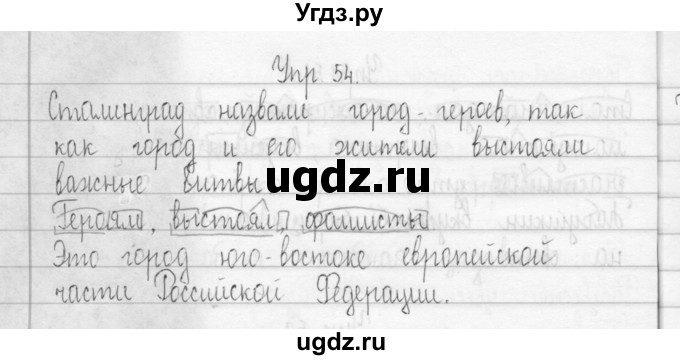 Угдз.ру
Упр 54.
Сталинград назвали город-героев, так
как город и его жители выстояли
важные битвы
ugdz.ru
Героям, выстоял, фашисты
Это город юго-востоке европейской
части Российской Федерации.
ugdz.ru